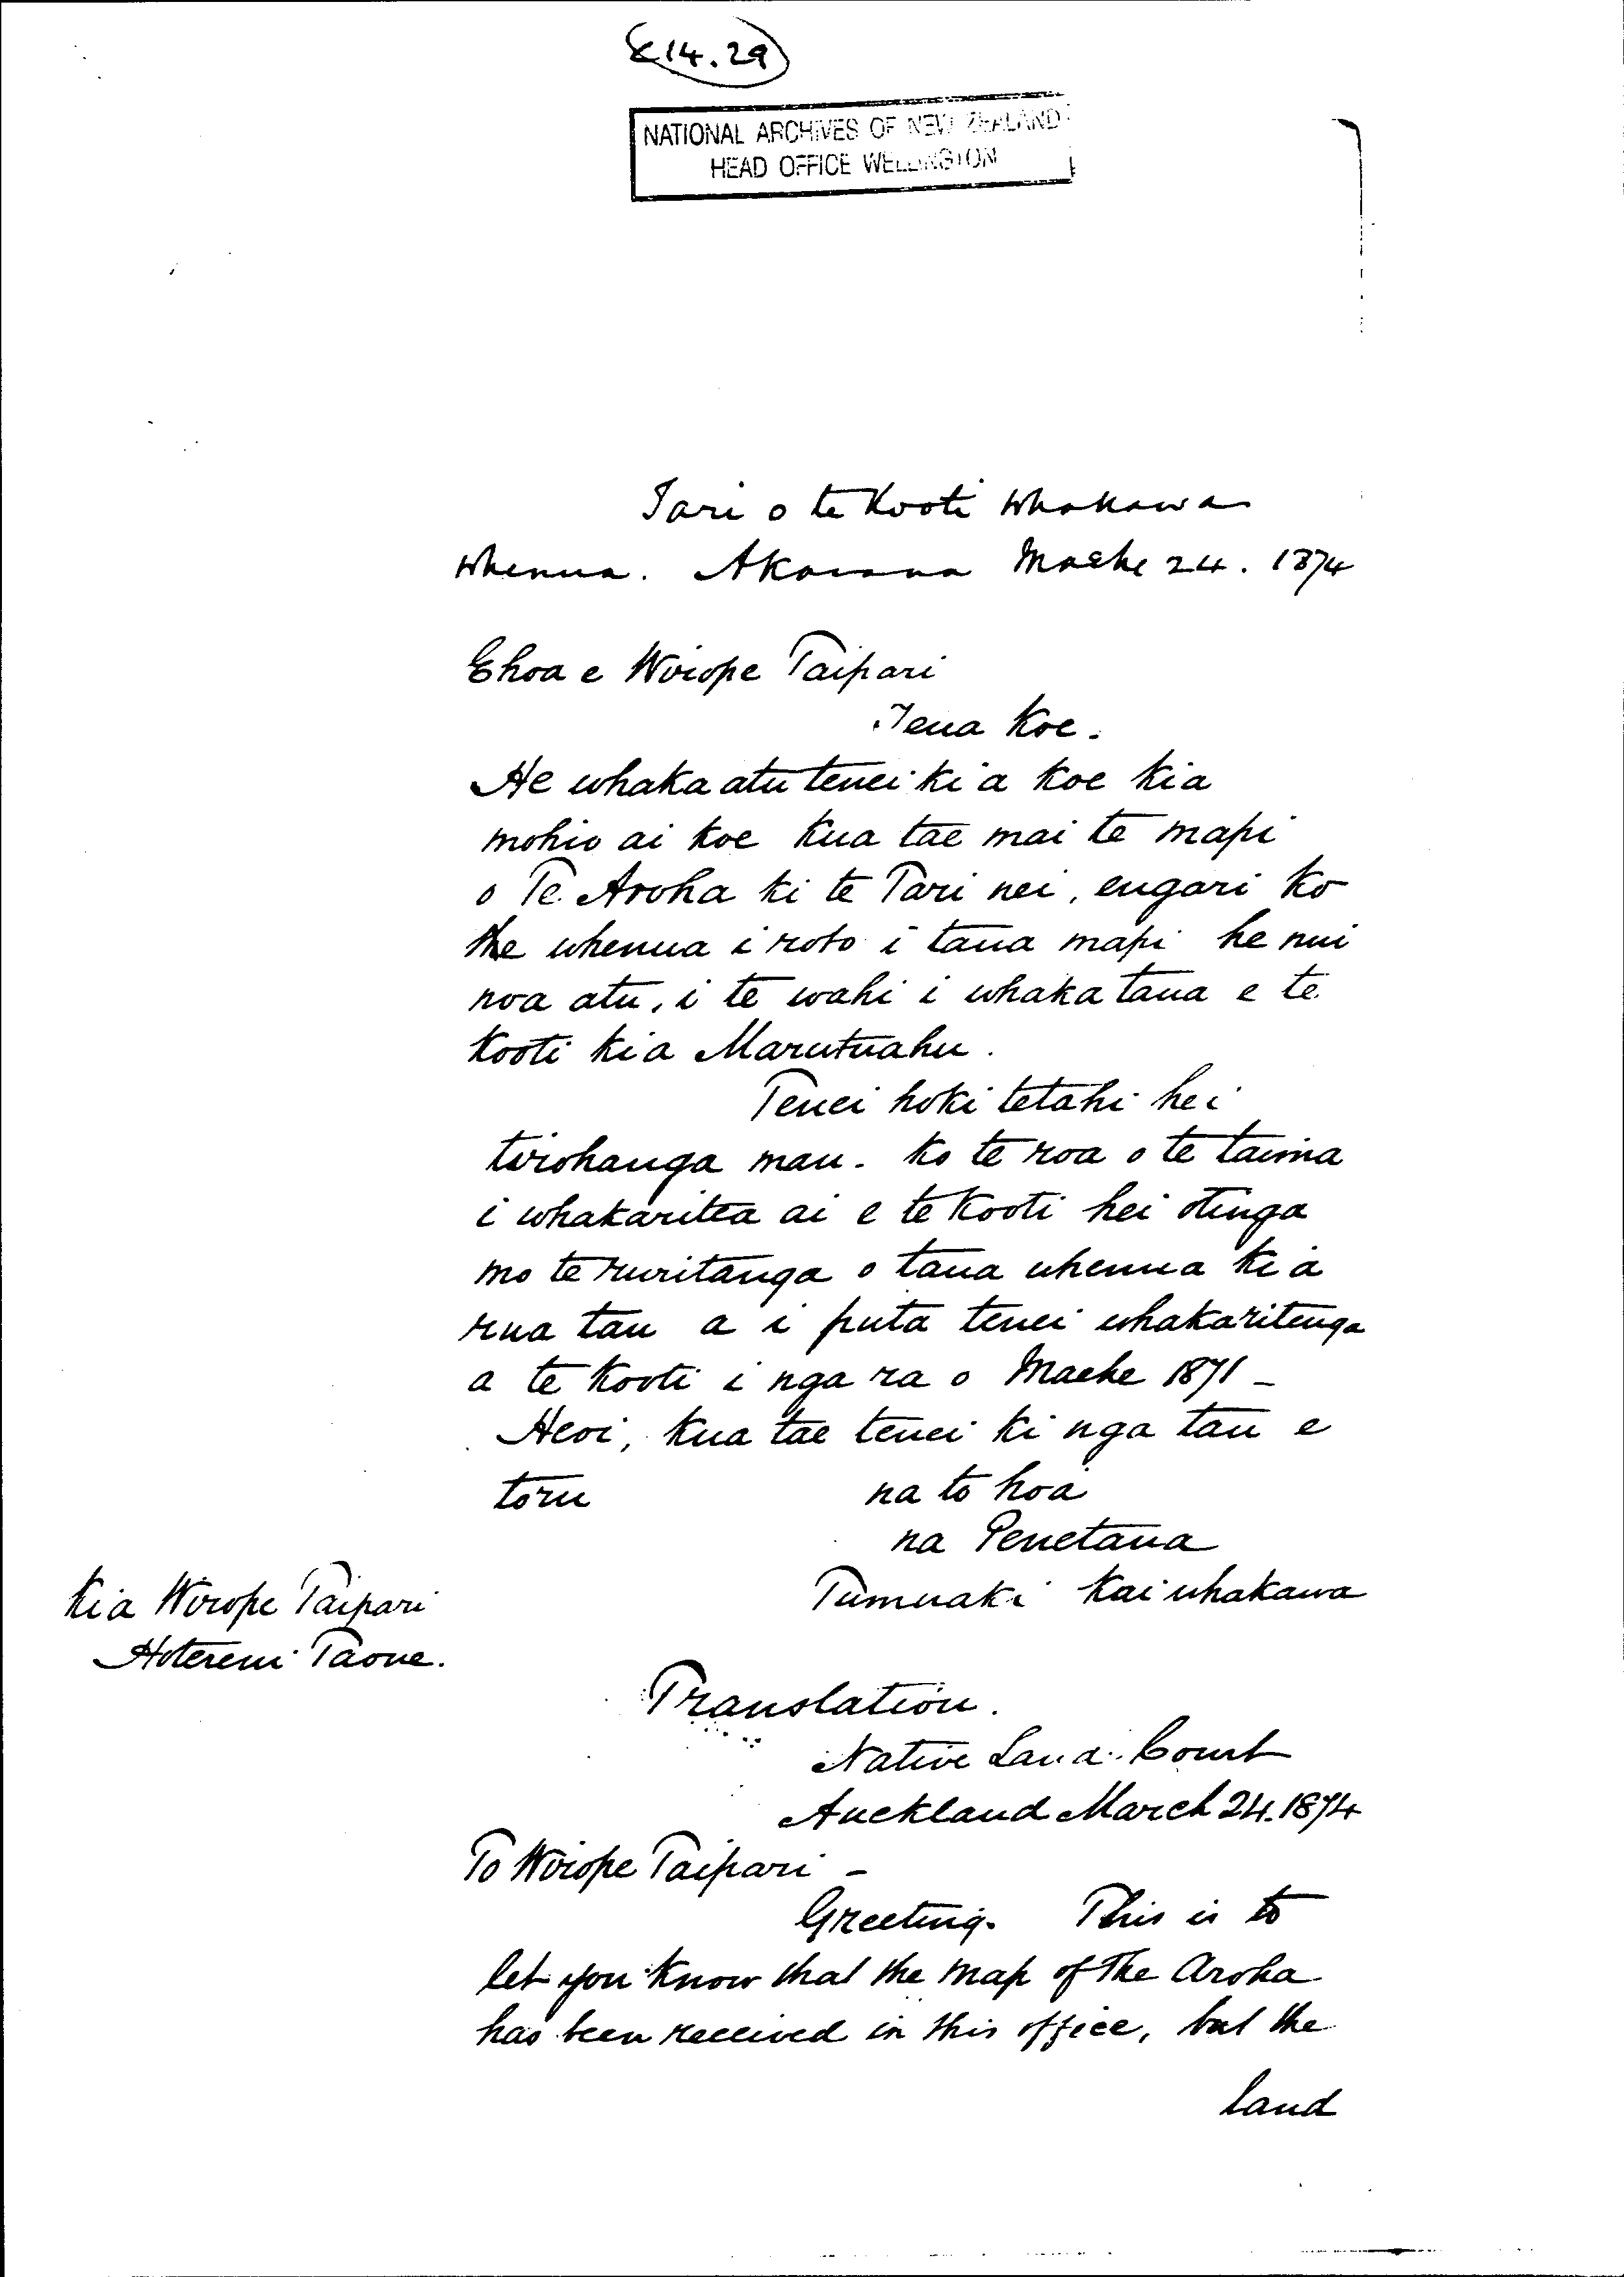 £14.29
NATIONAL ARCHIVES OF NEW ZEALAND
HEAD OFFICE WELLINGTON
Tari o te Kooti Whakawa
Whenua. Akarana Maehe 24. 1874
Ehoa e Wirope Taipari
Tena Koe.
He whaka atu tenei ki a Koe Kia
mohio ai Koe Kua tae mai te mapi
o Te Aroha ki te Tari nei, engari Ko
the whenua i roto i taua mapi he nui
noa atu, i te wahi i whaka taua e te
Kooti Ki a Marutuahu.
Tenei hoki tetahi hei
tirohanga mau. Ko te roa o te taima
i whakaritea ai e te Kooti hei otinga
mo te ruritanga o taua whenua Ki a
rua tau a i puta tenei whakaritenga
a te Kooti i nga ra o Maehe 1871 -
Heoi, Kua tae tenei ki nga tau e
toru na to hoa
na Penetana
Tumuaki Kai whakawa
Ki a Wirope Taipari
Hotereni Taone.
Translation.
Native Land Court
Auckland March 24. 1874
To Wirope Taipari -
Greeting. This is to
let you Know that the map of The Aroha
has been received in this office, but the
land